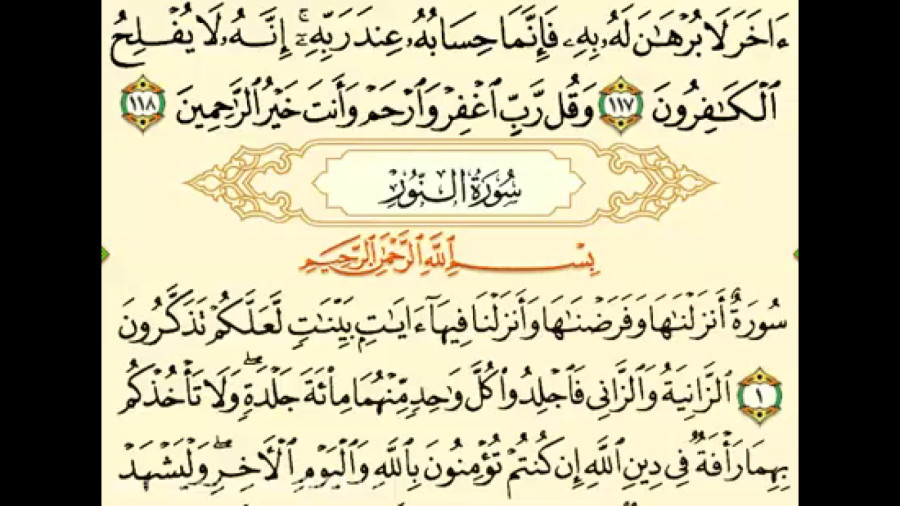 ءَاخَرَ لَا بُرْهَٰنَ لَهُۥ بِهِۦ فَإِنَّمَا حِسَابُهُۥ عِندَ رَبِّهِۦٓ ۚ إِنَّهُۥ لَا يُفْلِحُ
ٱلْكَٰفِرُونَ ١١٧ وَقُل رَّبِّ ٱغْفِرْ وَٱرْحَمْ وَأَنتَ خَيْرُ ٱلرَّٰحِمِينَ ١١٨
سُورَةُ النُّورِ
بِسْمِ ٱللَّهِ ٱلرَّحْمَٰنِ ٱلرَّحِيمِ
سُورَةٌ أَنزَلْنَٰهَا وَفَرَضْنَٰهَا وَأَنزَلْنَا فِيهَآ ءَايَٰتٍۭ بَيِّنَٰتٍ لَّعَلَّكُمْ تَذَكَّرُونَ
١ ٱلزَّانِيَةُ وَٱلزَّانِى فَٱجْلِدُوا۟ كُلَّ وَٰحِدٍ مِّنْهُمَا مِا۟ئَةَ جَلْدَةٍ ۖ وَلَا تَأْخُذْكُم
بِهِمَا رَأْفَةٌ فِى دِينِ ٱللَّهِ إِن كُنتُمْ تُؤْمِنُونَ بِٱللَّهِ وَٱلْيَوْمِ ٱلْءَاخِرِ ۖ وَلْيَشْهَدْ